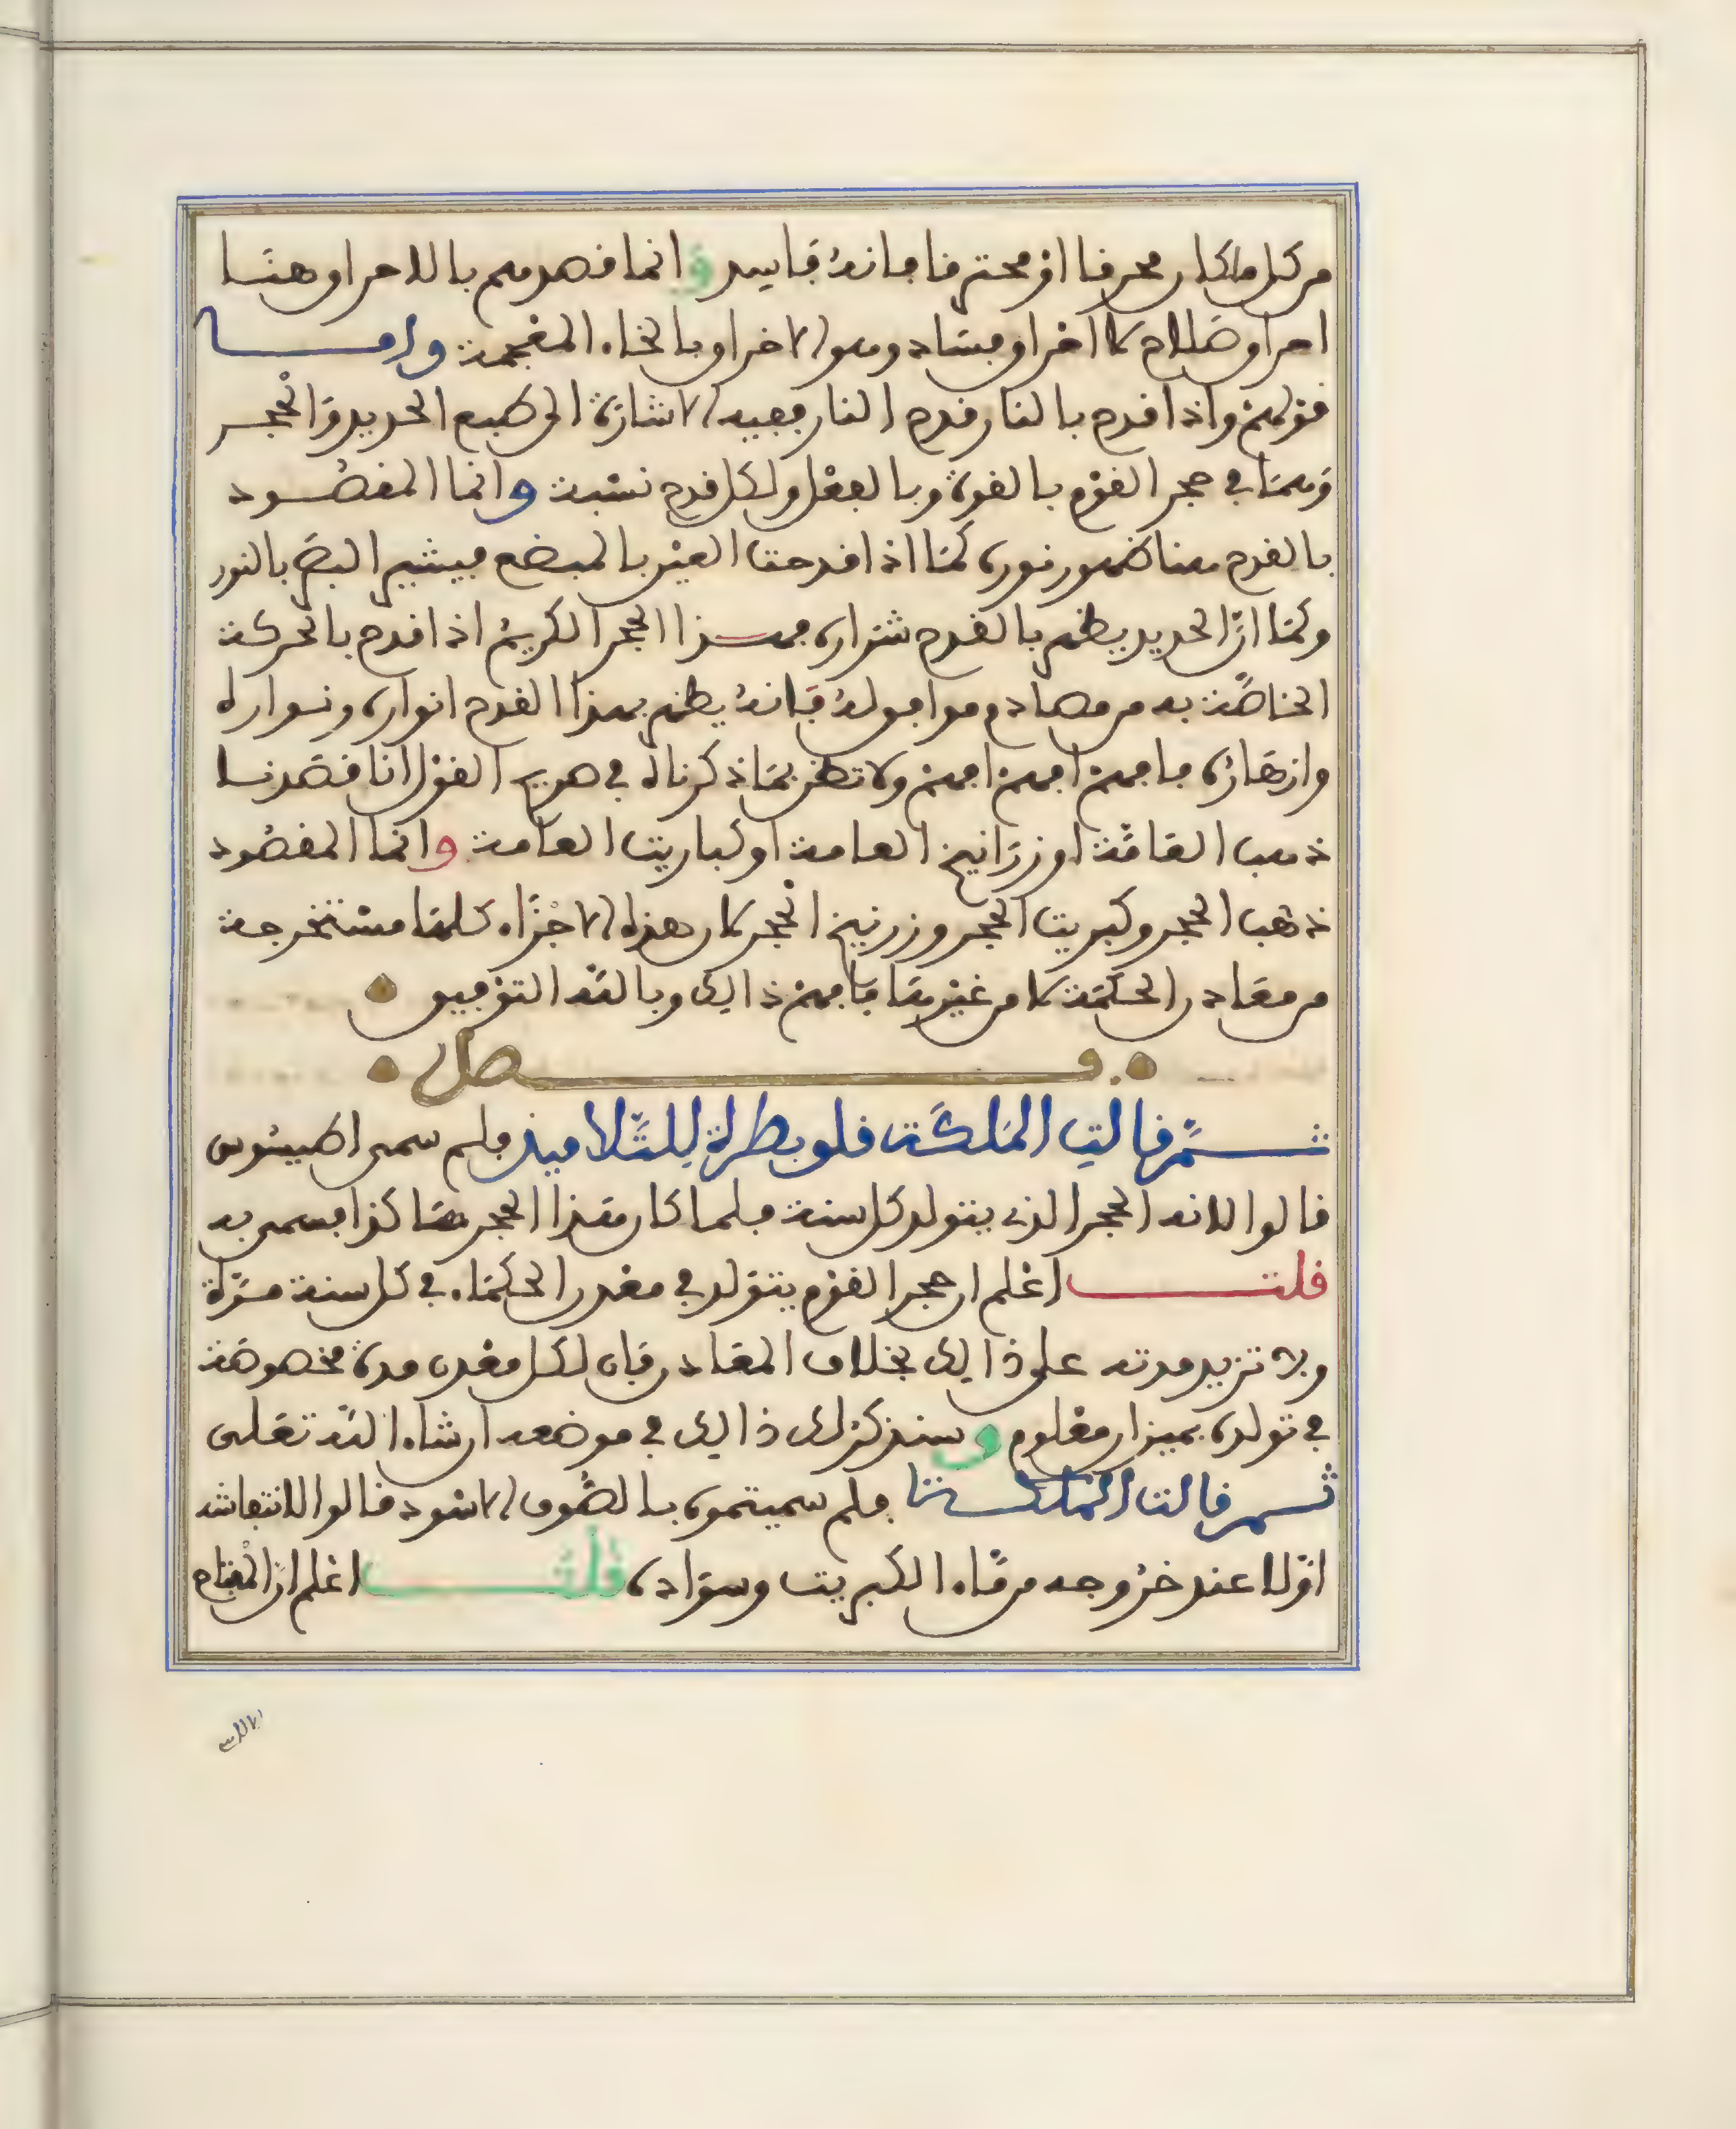 من كل ما كان محرفا او محترفا فانه فاسد وانما قصدهم بالاحراق هنا
احراق صلاح لا احراق فساد وهو الاخراق بالخاء المعجمة واما
قولهم واذا قدح بالنار قدح النار ففيه الاشارة الى طبع الحديد والحجر
وهما في حجر القوم بالقوة وبالفعل ولكل قدح نسبة وانما المقصود
بالقدح هنا ظهور نوره كما اذا قدحت العين بالمبضع فيشير البصر بالنور
وكما ان الحديد يظهر بالقدح شراره فهذا الحجر الكريم اذا قدح بالحركة
الخاصة به من مصادم موافق له فانه يظهر بهذا القدح انواره ونواره
وازهاره فافهم افهم افهم ولا تظن بما ذكرناه في هذه القول انا قصدنا
ذهب العامة او زرانيخ العامة او كباريت العامة وانما المقصود
ذهب الحجر وكبريت الحجر وزرنيخ الحجر لان هذه الاجزاء كلها مستخرجة
من معادن الحكمة لا من غيرها فافهم ذالك وبالله التوفيق
فصل
ثم قالت الملكة قلوبطرة للتلاميذ فلم سمي اطيسوس
قالوا لانه الحجر الذي يتولد كل سنة فلما كان هذا الحجر هكذا فسمي به
قلت اعلم ان حجر القوم يتولد في معدن الحكماء في كل سنة مرة
ولا تزيد مدته على ذالك بخلاف المعادن فان لكل معدن مدة مخصوصة
في تولده بميزان معلوم وسنذكر لك ذالك في موضعه ان شاء الله تعلى
ثم قالت الملكة فلم سميتموه بالصوف الاسود قالوا لانتفاشه
اولا عند خروجه من ماء الكبريت وسواده قلت اعلم ان المفتاح